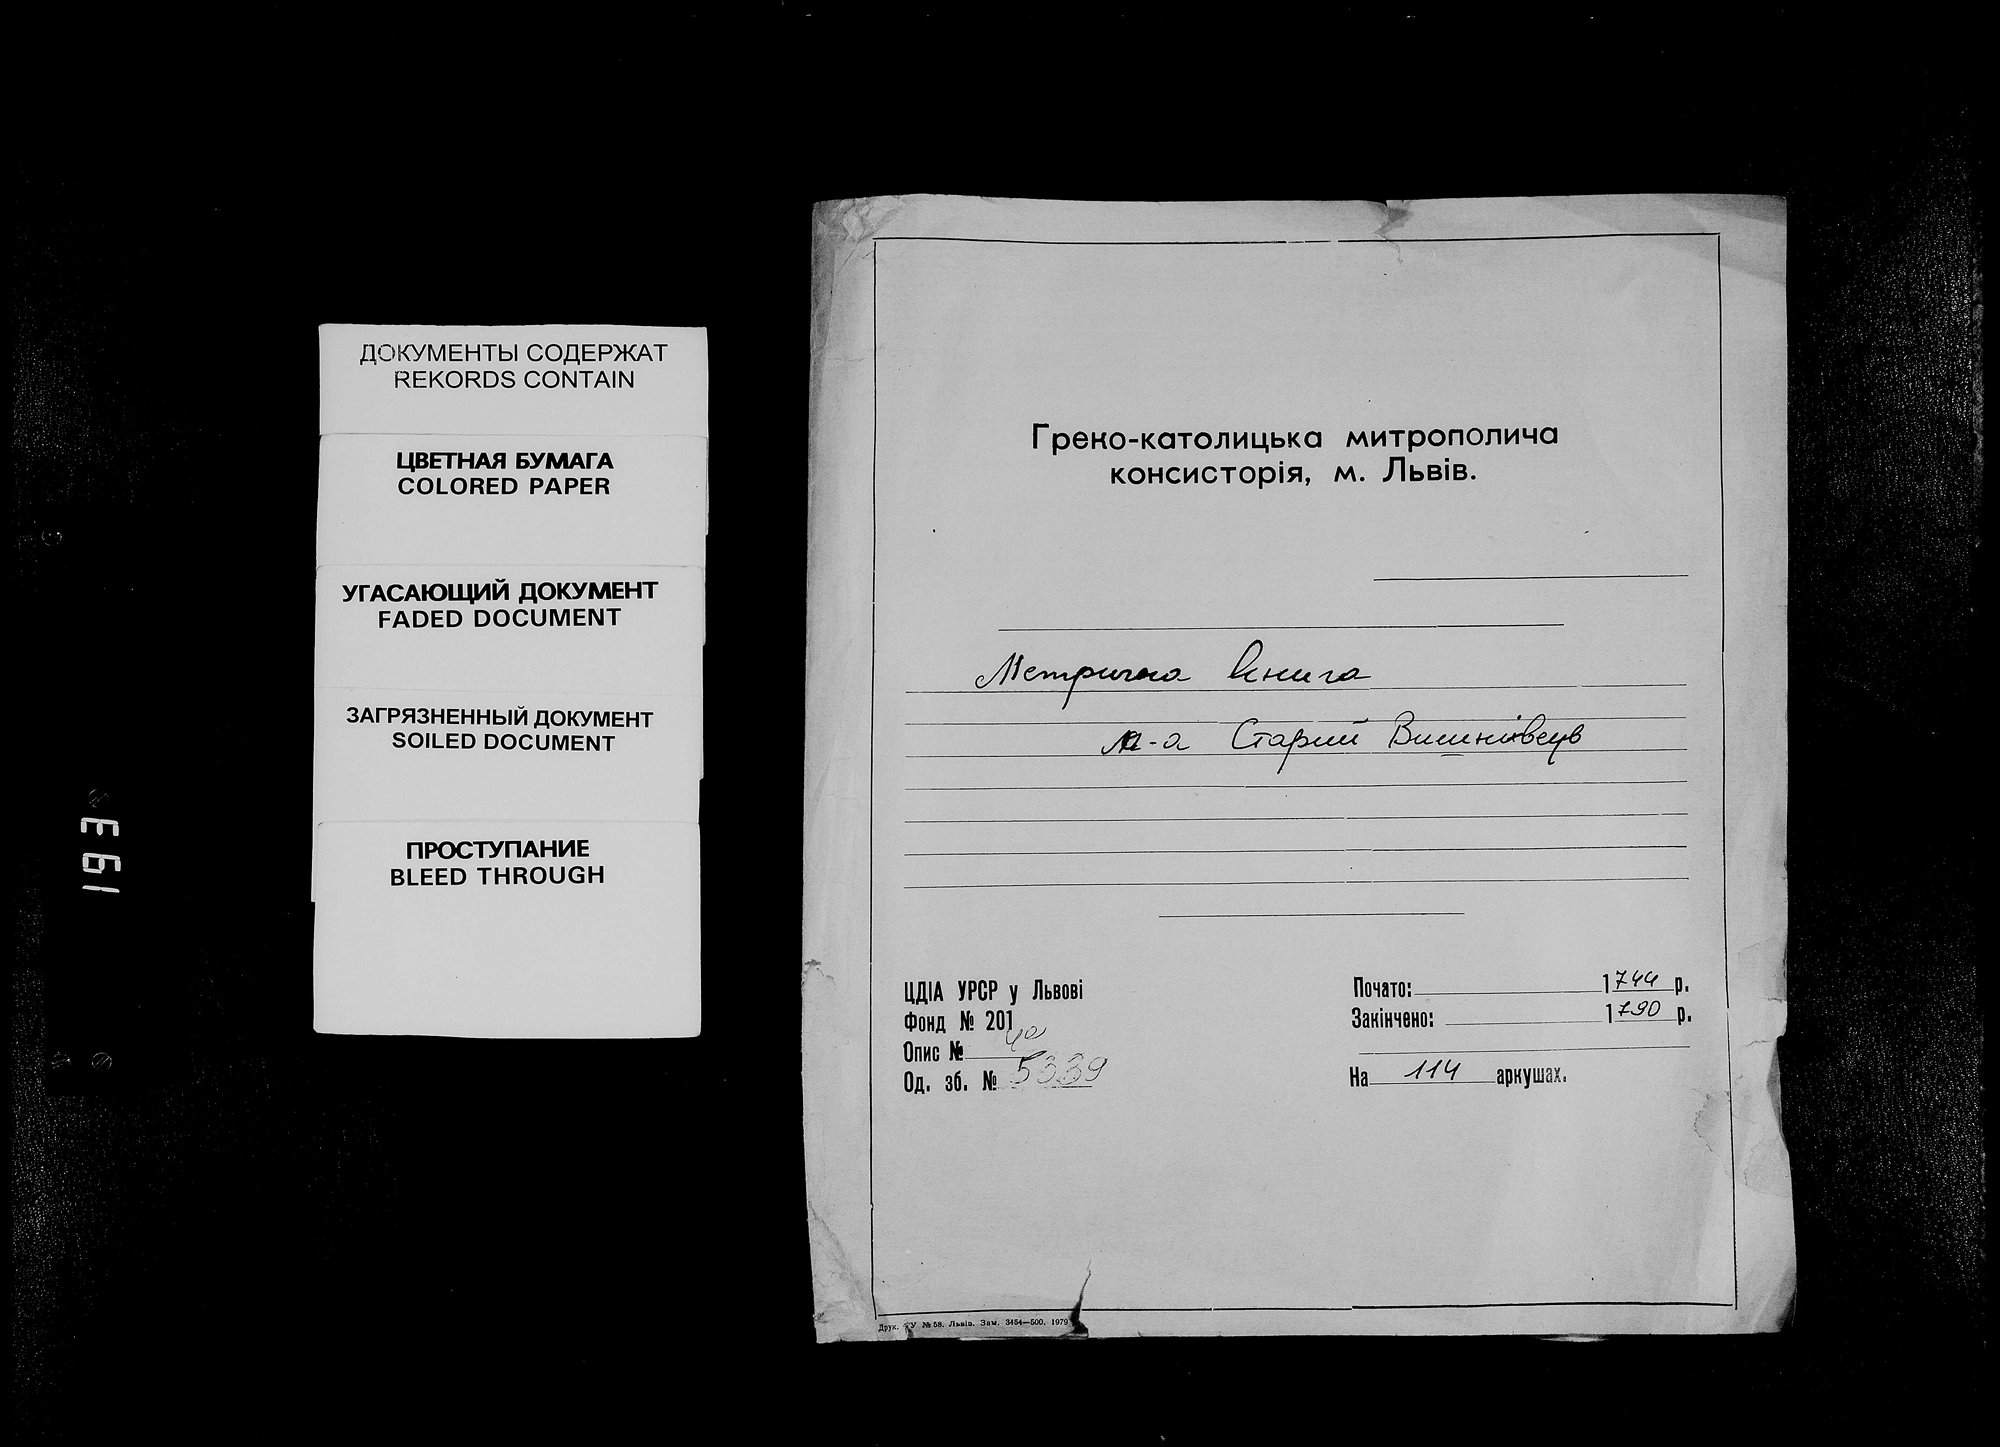 ДОКУМЕНТЫ СОДЕРЖАТ
REKORDS CONTAIN
ЦВЕТНАЯ БУМАГА
COLORED PAPER
УГАСАЮЩИЙ ДОКУМЕНТ
FADED DOCUMENT
ЗАГРЯЗНЕННЫЙ ДОКУМЕНТ
SOILED DOCUMENT
ПРОСТУПАНИЕ
BLEED THROUGH
Греко-католицька митрополича
консисторія, м. Львів.
Метрична книга
м-а Старий Вишнівець
ЦДІА УРСР у Львові
Фонд № 201
Опис № 4а
Од. зб. № 5339
Почато: 1744 р.
Закінчено: 1790 р.
На 114 аркушах.
Друк. № 58. Львів. Зам. 3454—500. 1979